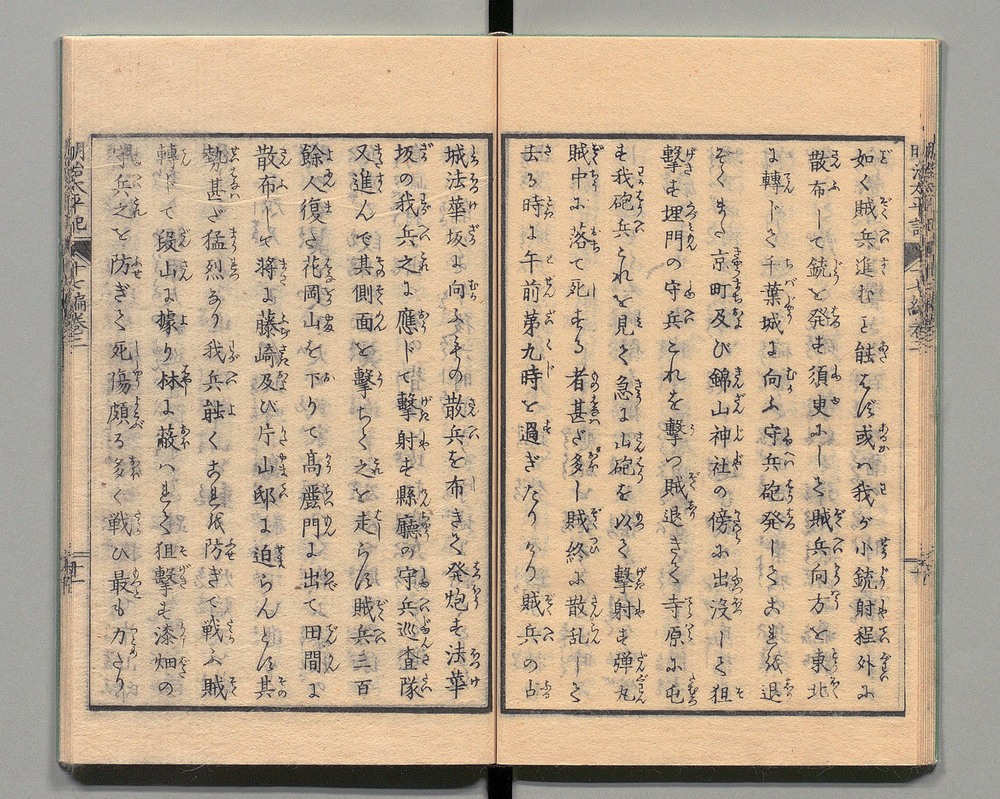 如く賊兵進むと能はず或ハ我が小銃射程外に
散布して銃を発す須臾にして賊兵向方を東北
に轉じて千葉城に向ふ守兵砲発してこれを退
そくまた京町及び錦山神社の傍に出没して狙
撃す埋門の守兵これを撃つ賊退きて寺原に屯
す我砲兵これを見て急に山砲を以て撃射す弾丸
賊中に落て死する者甚だ多し賊終に散乱して
去る時に午前第九時を過ぎたり 賊兵の占
城法華坂に向ふその散兵を布きて発炮す法華
坂の我兵之に應じて撃射す縣廳の守兵巡査隊
又進んで其側面を撃ちて之を走らす賊兵三百
餘人復た花岡山を下りて高麗門に出て田間に
散布して将に藤崎及び片山邸に迫らんとす其
勢甚だ猛烈なり我兵能くこれを防ぎて戦ふ賊
轉じて段山に據り林に蔽ハれて狙擊す漆畑の
守兵之を防ぎて死傷頗る多く戦ひ最も力たり
明治太平記
十七編巻二